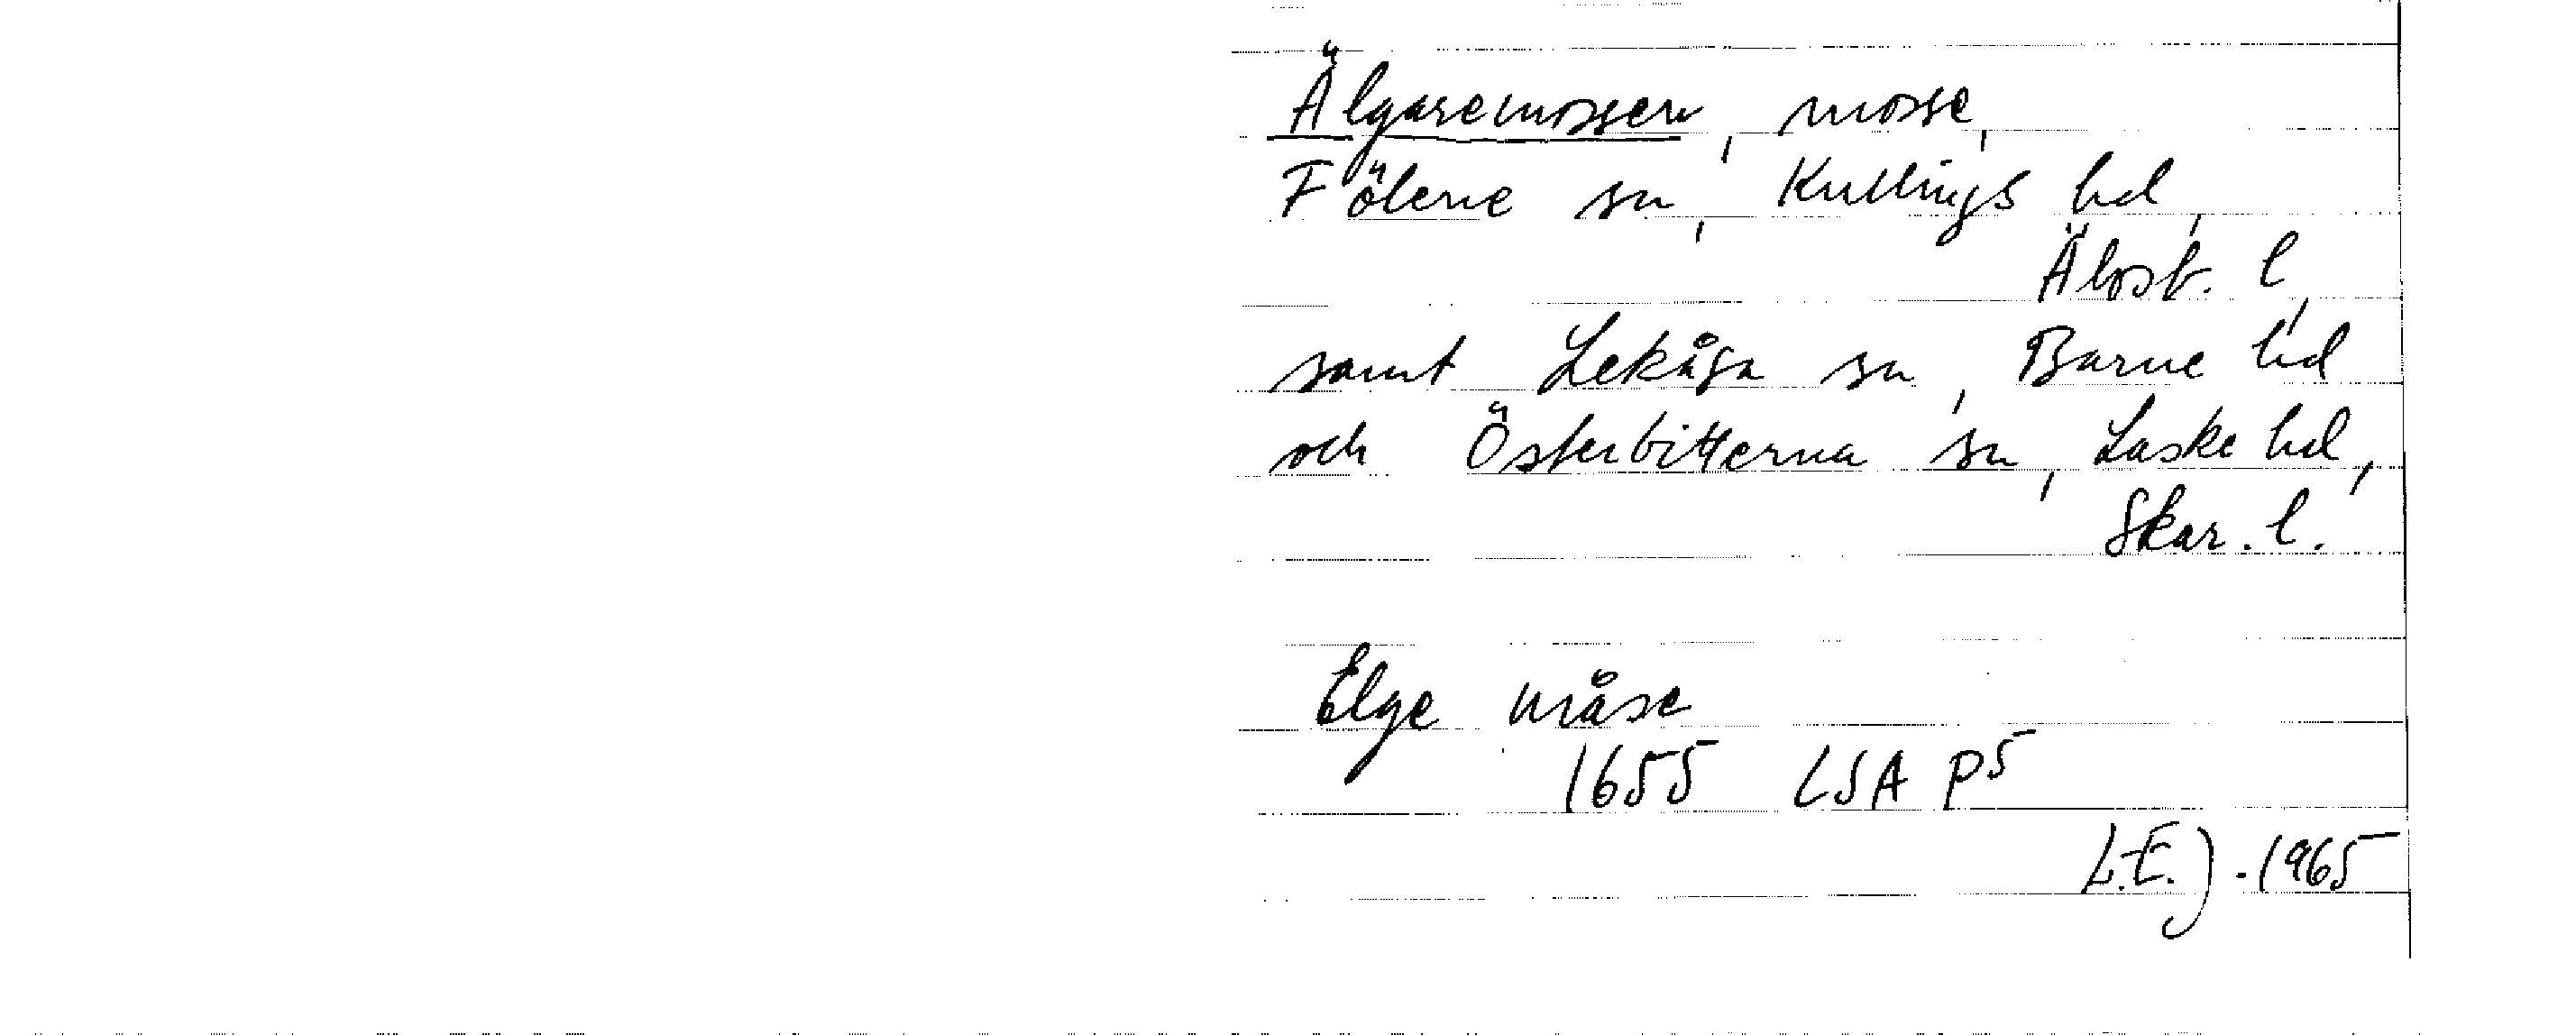 Älgaremossen, mosse,
Fölene sn, Kullings hd,
Älvsb. l,
samt Lekåsa sn, Barne hd
och Österbitterna sn, Laske hd,
Skar. l.
Elge måse
1655 LSA P5
L.E.J. 1965